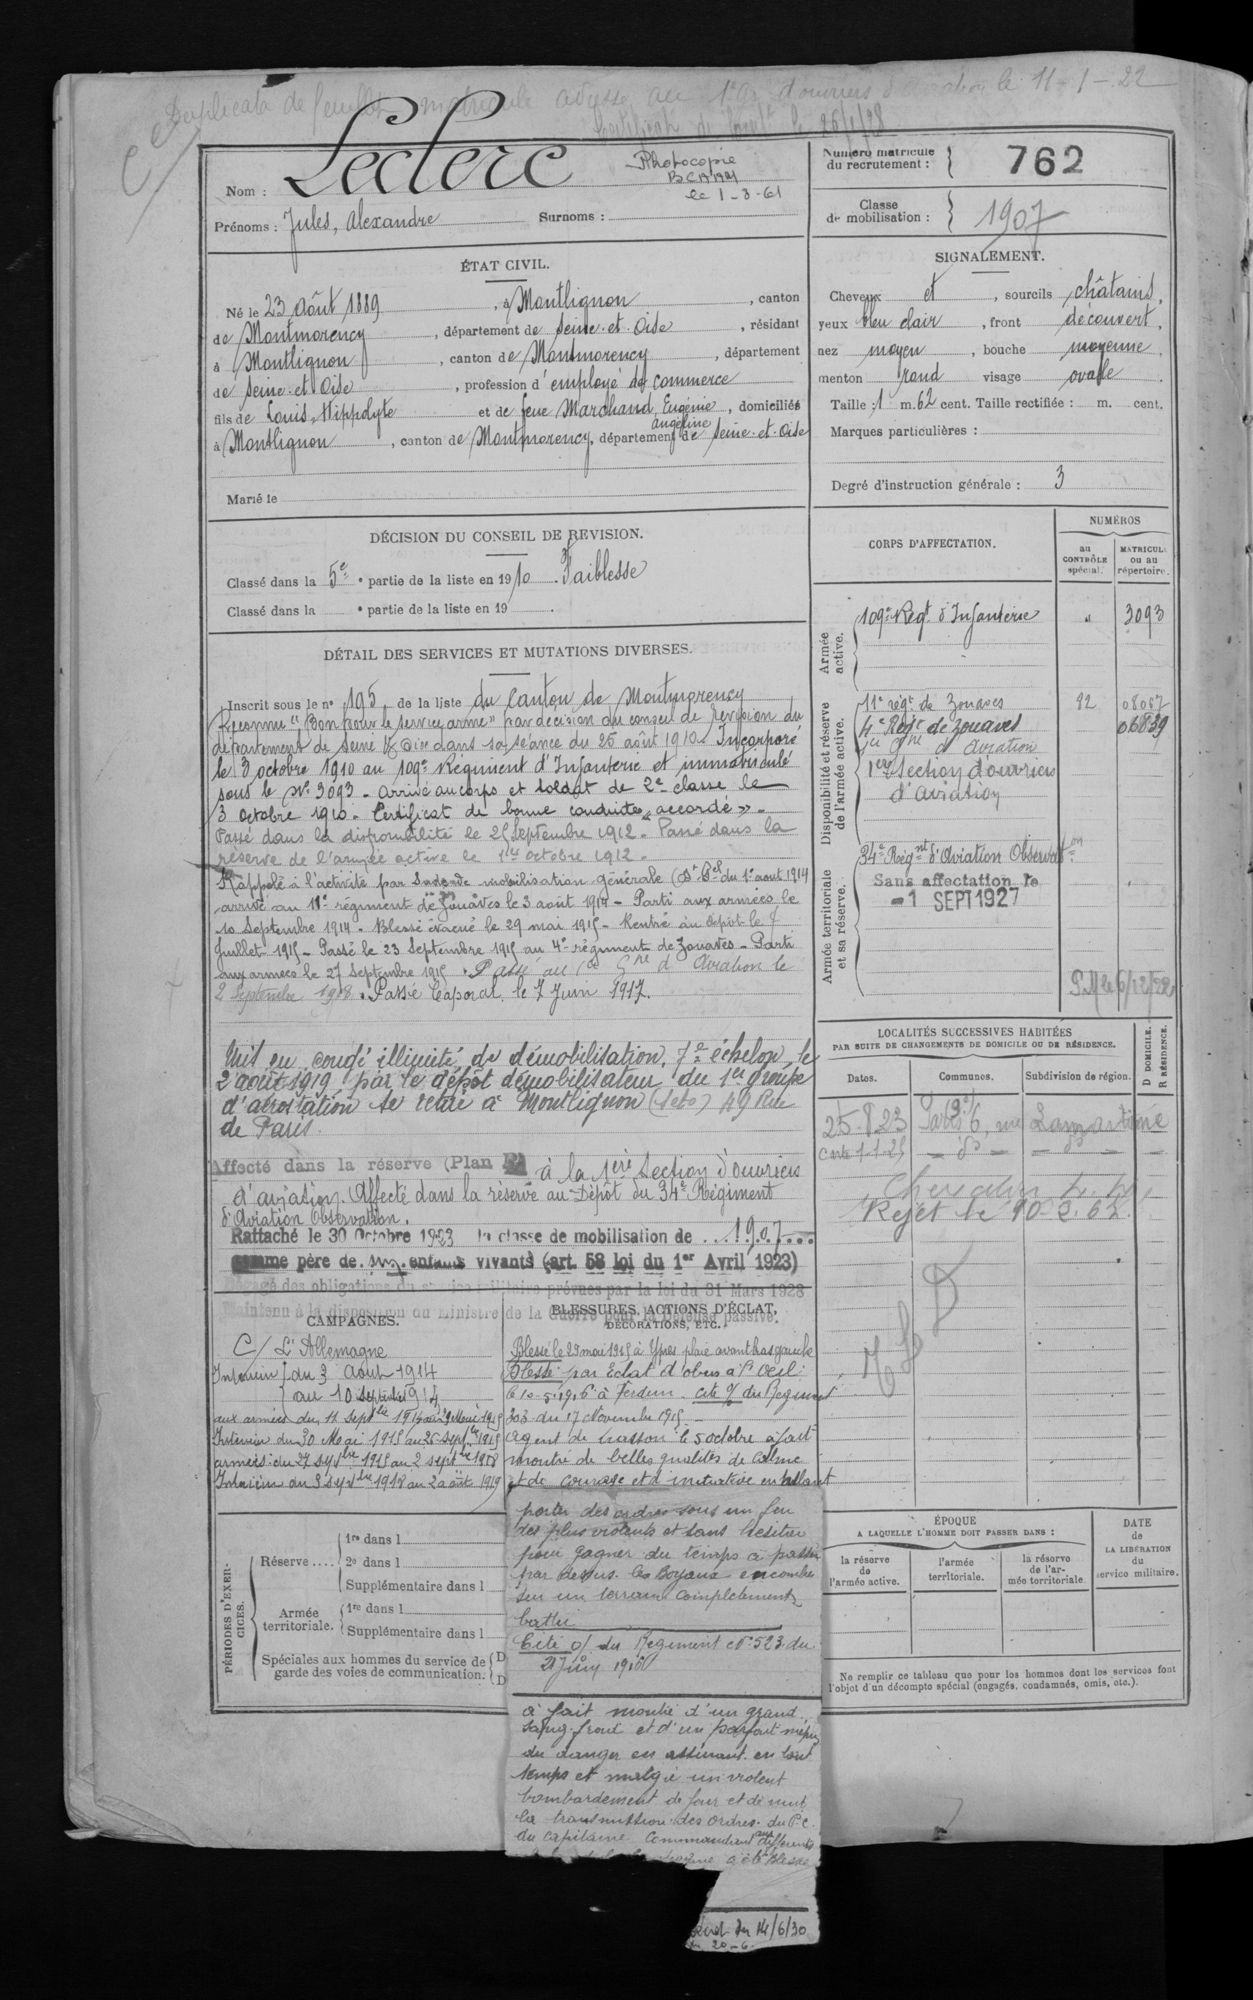 Duplicata de feuillet matricule adressé au 1er d'ouvriers d'aviation le 11-1-22
Certificat de le 26/1/28
Leclerc
Photocopie
le 1-3-61
Nom :
Prénoms : Jules, Alexandre Surnoms :
Numéro matricule du recrutement : 762
Classe de mobilisation : 1907
ÉTAT CIVIL.
Né le 23 Août 1889, à Montlignon, canton
de Montmorency, département de Seine-et-Oise, résidant
à Montlignon, canton de Montmorency, département
de Seine-et-Oise, profession d'employé de commerce
fils de Louis, Hippolyte et de feue Marchand, Eugénie Angéline, domiciliés
à Montlignon, canton de Montmorency, département de Seine-et-Oise
Marié le
SIGNALEMENT.
Cheveux et, sourcils châtains,
yeux bleu clair, front découvert,
nez moyen, bouche moyenne,
menton rond visage ovale.
Taille : 1 m. 62 cent. Taille rectifiée : m. cent.
Marques particulières :
Degré d'instruction générale : 3
DÉCISION DU CONSEIL DE REVISION.
Classé dans la 5e partie de la liste en 1910. Faiblesse
Classé dans la e partie de la liste en 19 .
DÉTAIL DES SERVICES ET MUTATIONS DIVERSES.
Inscrit sous le n° 195 de la liste du Canton de Montmorency
Reconnu "Bon pour le service armé" par décision du conseil de revision du
département de Seine & Oise dans sa séance du 25 août 1910. Incorporé
le 3 octobre 1910 au 109e Régiment d'Infanterie et immatriculé
sous le No 3093. arrivé au corps et soldat de 2e classe le
3 octobre 1910. Certificat de bonne conduite "accordé".
Passé dans la disponibilité le 25 Septembre 1912. Passé dans la
réserve de l'armée active le 1er octobre 1912.
Rappelé à l'activité par mobilisation générale du 1er aout 1914
arrivé au 11e régiment de Zouaves le 3 août 1914 - Parti aux armées le
10 Septembre 1914. Blessé évacué le 29 mai 1915 - Rentré au dépôt le 7
Juillet 1915 - Passé le 23 Septembre 1915 au 4e régiment de Zouaves - Parti
aux armées le 27 Septembre 1915. Passé au 1er d'Aviation le
2 Septembre 1918. Passé Caporal le 7 Juin 1917.
Mis en congé illimité de démobilisation, 7e échelon, le
2 août 1919 par le dépôt démobilisateur du 1er groupe
d'aérostation se retire à Montlignon (Set O) 49 Rue
de Paris.
Affecté dans la réserve (Plan à la 1ère Section d'ouvriers
d'aviation. Affecté dans la réserve au Dépôt du 34e Régiment
d'Aviation Observation.
Rattaché le 30 Octobre 1923 la classe de mobilisation de 1907
comme père de enfants vivants (art. 58 loi du 1er Avril 1923)
Dégagé des obligations du service militaire prévues par la loi du 31 Mars 1928
Maintenu à la disposition du Ministre de la Guerre pour la Défense passive.
CORPS D'AFFECTATION.
NUMÉROS
au CONTRÔLE spécial.
MATRICULE ou au répertoire.
Armée active.
109e Régt d'Infanterie " 3093
Disponibilité et réserve de l'armée active.
11e régt de Zouaves 92 08067
4e Régt de Zouaves 06839
1er d'Aviation
1ere Section d'ouvriers
d'aviation
Armée territoriale et sa réserve.
34e Régnt d'Aviation Observaton
Sans affectation le
-1 SEPT 1927
LOCALITÉS SUCCESSIVES HABITÉES
PAR SUITE DE CHANGEMENTS DE DOMICILE OU DE RÉSIDENCE.
Dates. Communes. Subdivision de région. D DOMICILE. R RÉSIDENCE.
25-8-23 Paris 9e 6, rue Lamartine
Carte 1-1-25 - do - - do -
Rejet le 10.2.62.
CAMPAGNES.
C/ L'Allemagne
Intérieur du 3 Août 1914
au 10 Septembre 1914
aux armées du 11 Septbre 1914 au 29 Mai 1915
Intérieur du 30 Mai 1915 au 26 Septbre 1915
armées: du 27 Septbre 1915 au 2 septbre 1918
Intérieur du 3 Septbre 1918 au 2 août 1919
BLESSURES, ACTIONS D'ÉCLAT, DÉCORATIONS, ETC.
Blessé le 29 mai 1915 à Ypres plaie avant bras gauche
Blessé par Eclat d'obus à l'Oeil
le 10-5-1916 à Verdun. Cité O/ du Régiment
303 du 17 Novembre 1915.
Agent de liaison le 5 octobre a fait
montre de belles qualités de calme
et de courage et d'initiative en allant
porter des ordres sous un feu
des plus violents et sans hésiter
pour gagner du temps à passer
par dessus les Boyaux encombrés
sur un terrain complètement
battu
Cité O/ du Régiment No 523 du
21 Juin 1916
a fait montre d'un grand
sang-froid et d'un parfait mépris
du danger en assurant en tout
temps et malgré un violent
bombardement de jour et de nuit
la transmission des ordres du P.C.
du Capitaine Commandant aux différents
a été Blessé
du 14/6/30
20-6
PÉRIODES D'EXERCICES.
Réserve .... 1re dans l
2e dans l
Supplémentaire dans l
Armée territoriale. 1re dans l
Supplémentaire dans l
Spéciales aux hommes du service de garde des voies de communication. D
D
ÉPOQUE
A LAQUELLE L'HOMME DOIT PASSER DANS :
la réserve de l'armée active.
l'armée territoriale.
la réserve de l'armée territoriale.
DATE de LA LIBÉRATION du service militaire.
Ne remplir ce tableau que pour les hommes dont les services font
l'objet d'un décompte spécial (engagés, condamnés, omis, etc.).